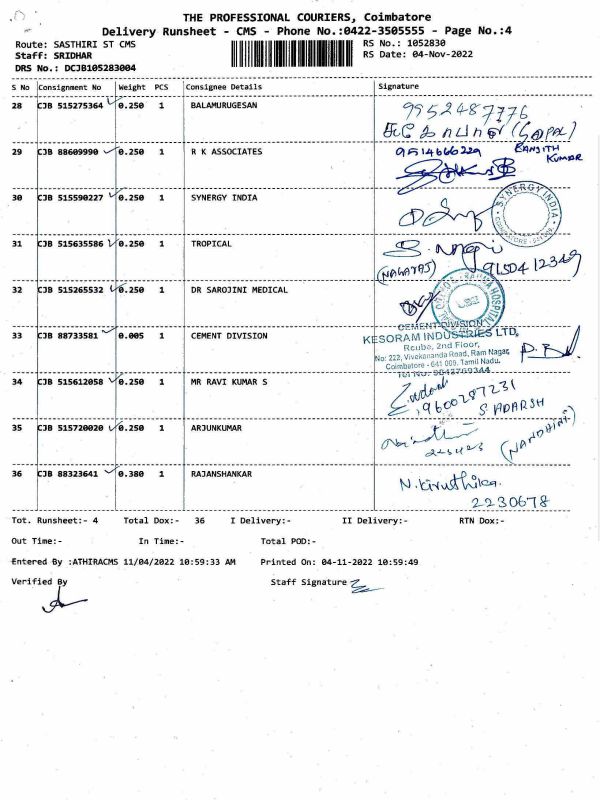 THE PROFESSIONAL COURIERS, Coimbatore
Delivery Runsheet - CMS - Phone No.:0422-3505555 - Page No.:4
Route: SASTHIRI ST CMS
RS No.: 1052830
Staff: SRIDHAR
RS Date: 04-Nov-2022
DRS No.: DCJB105283004
S No Consignment No Weight PCS Consignee Details Signature
28 CJB 515275364 0.250 1 BALAMURUGESAN 9952487776
(GOPAL)
29 CJB 88609990 0.250 1 R K ASSOCIATES 9514666229 RANJITH
KUMAR
30 CJB 515590227 0.250 1 SYNERGY INDIA SYNERGY INDIA
COIMBATORE
31 CJB 515635586 0.250 1 TROPICAL
(NAGARAJ) 9150412349
32 CJB 515265532 0.250 1 DR SAROJINI MEDICAL
33 CJB 88733581 0.005 1 CEMENT DIVISION CEMENT DIVISION
KESORAM INDUSTRIES LTD,
2nd Floor,
No: 222, Vivekananda Road, Ram Nagar,
Coimbatore - 641 009. Tamil Nadu.
34 CJB 515612058 0.250 1 MR RAVI KUMAR S 9600287231
S ADARSH
35 CJB 515720020 0.250 1 ARJUNKUMAR
(NANDHINI)
36 CJB 88323641 0.380 1 RAJANSHANKAR N. Kiruthika.
2230678
Tot. Runsheet:- 4 Total Dox:- 36 I Delivery:- II Delivery:- RTN Dox:-
Out Time:- In Time:- Total POD:-
Entered By :ATHIRACMS 11/04/2022 10:59:33 AM Printed On: 04-11-2022 10:59:49
Verified By Staff Signature